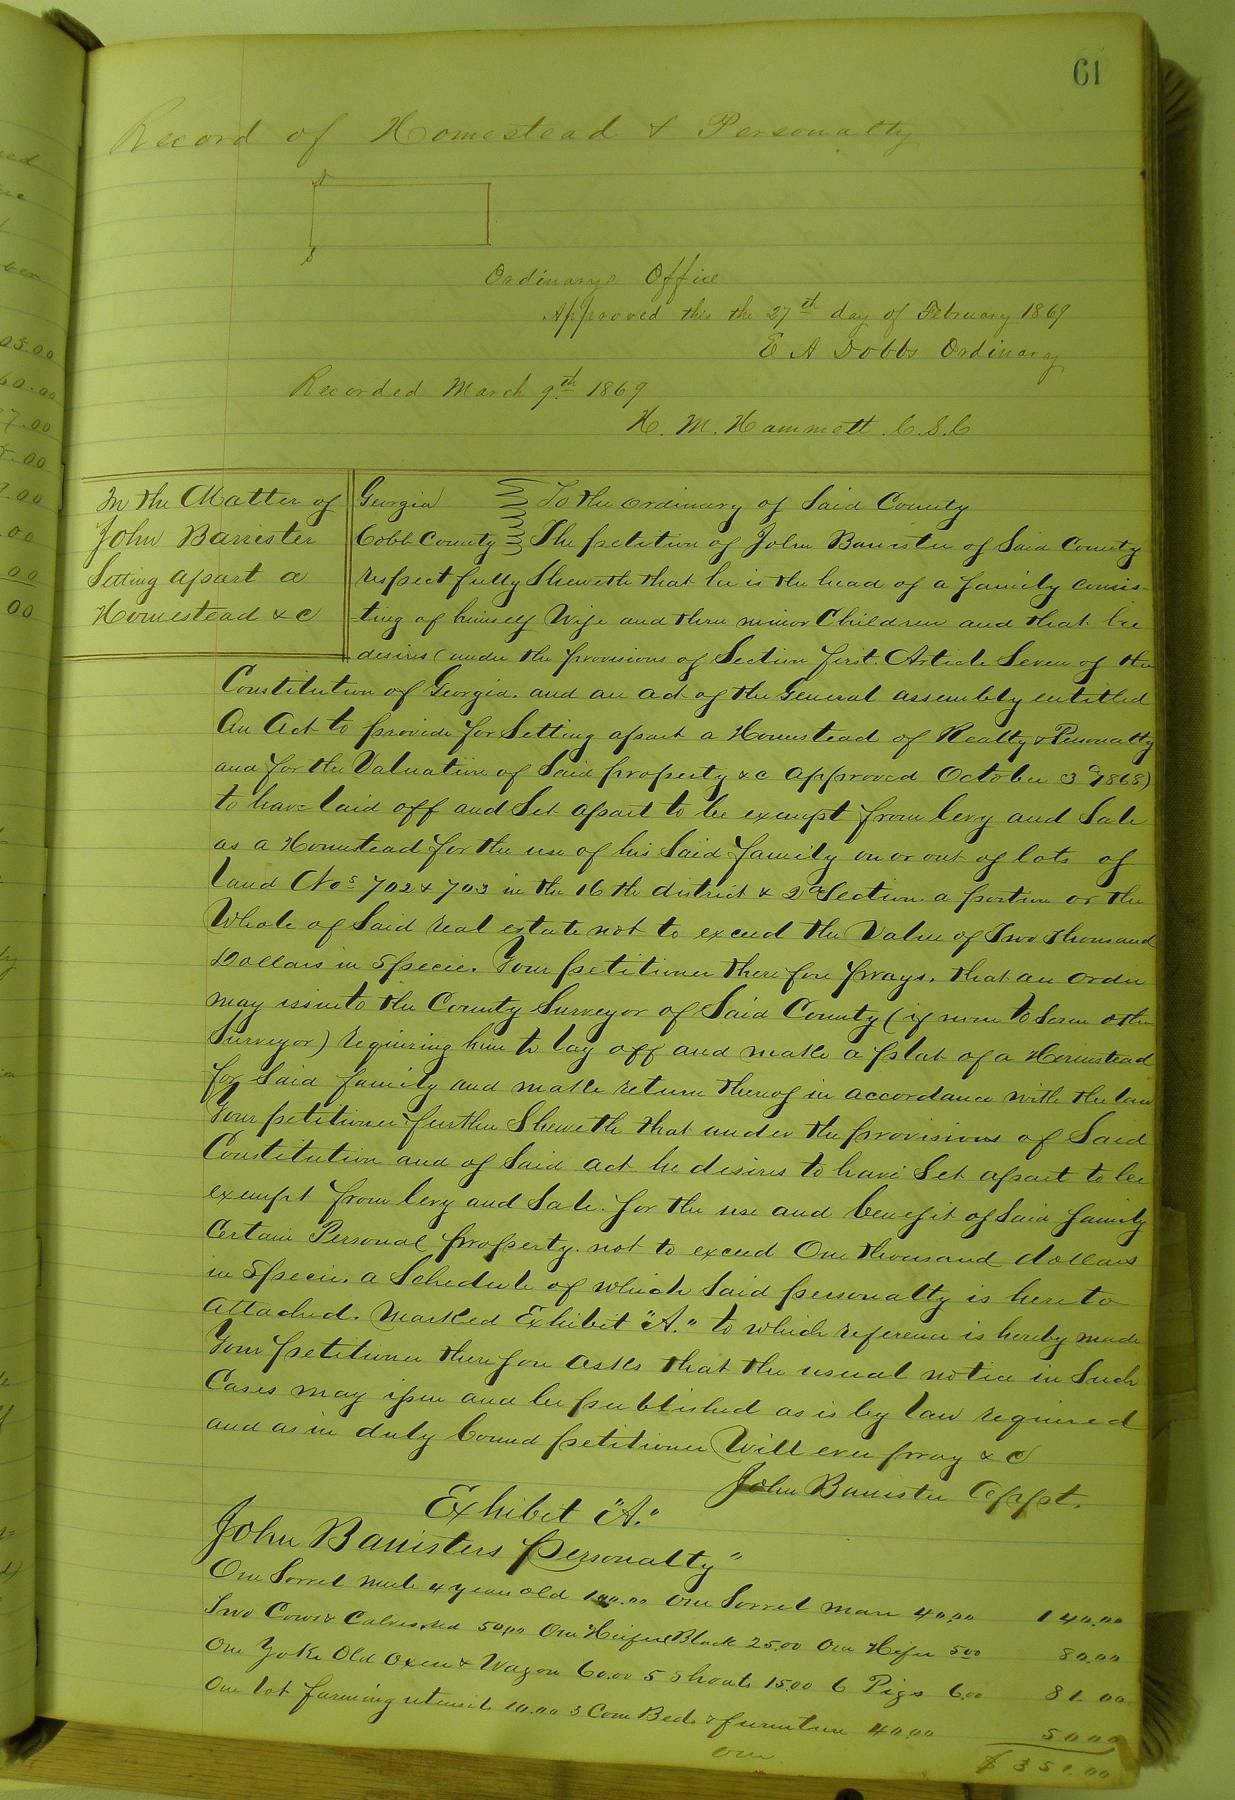 61
Record of Homestead & Personalty
N
S
Ordinarys Office
Approved this the 27th day of February 1869
E A Dobbs Ordinary
Recorded March 9th 1869
H. M. Hammett C.S.C
In the Matter of
John Barrister
Setting apart a
Homestead &c
Georgia
Cobb County
To the ordinary of Said County
The petition of John Banister of Said County
respectfully Sheweth that he is the head of a family consis-
ting of himself Wife and three minor Children and that he
desires (under the provisions of Section first. Article Seven of the
Constitution of Georgia. and an act of the General assembly entitled
An Act to provide for Setting apart a Homestead of Realty & Personalty
and for the Valuation of Said property &c approved October 3d 1868)
to have laid off and Set apart to be exempt from levy and Sale
as a Homestead for the use of his Said family on or out of lots of
land Nos 702 & 703 in the 16th district & 2d Section. a portion or the
Whole of Said real estate not to exceed the Value of Two thousand
Dollars in Specie. Your petitioner therefore prays. that an order
may issue to the County Surveyor of Said County (if none to Some other
Surveyor) requiring him to lay off and make a plat of a Homestead
for Said family and make return thereof in accordance with the law
Your petitioner further Sheweth that under the provisions of Said
Constitution and of Said act he desires to have Set apart to be
exempt from levy and Sale. for the use and benefit of Said family
Certain Personal property. not to exceed One thousand dollars
in Specie. a Schedule of which Said personalty is hereto
attached. Marked Exhibit "A." to which reference is hereby made
Your petitioner therefore asks that the usual notice in Such
Cases may issue and be published as is by law required
and as in duty bound petitioner Will ever pray &c
John Banister Appt.
Exhibet "A."
John Banisters Personalty"
One Sorrel mule 4 year old 100.00 One Sorrel mare 40.00 140.00
Two Cows & Calves red 50.00 One Heifer Black 25.00 One Heifer 5.00 80.00
One Yoke Old Oxen & Wagon 60.00 5 Shoats 15.00 6 Pigs 6.00 81.00
One lot farming utensils 10.00 3 Com Beds & furniture 40.00 50.00
over $351.00